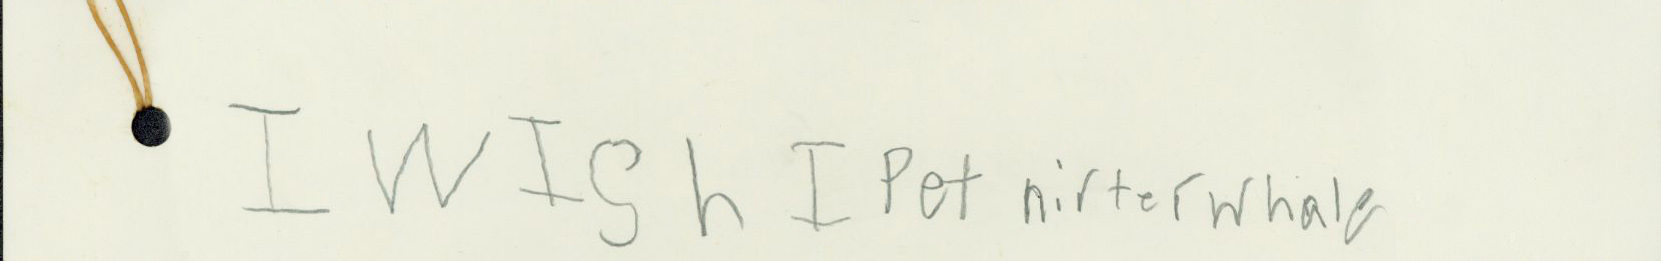 I WISh I Pet nirterwhale